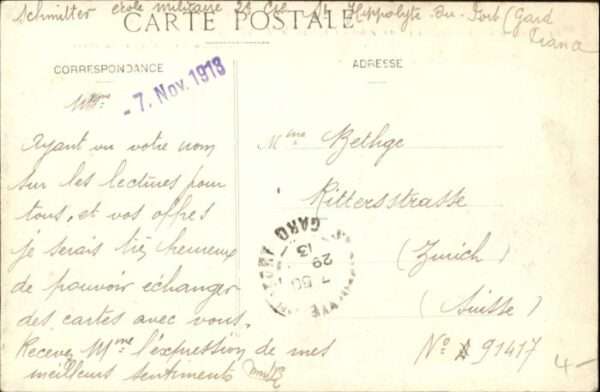 Schmitter école militaire 2e Cie St Hippolyte-du-Fort (Gard
CARTE POSTALE
France
CORRESPONDANCE
ADRESSE
- 7. Nov. 1913
Mme
Ayant vu votre nom
sur les lectures pour
tous, et vos offres
je serais très heureux
de pouvoir échanger
des cartes avec vous.
Recevez Mme l'expression de mes
meilleurs sentiments
Mme Bethge
Rittersstrasse
(Zurich)
(Suisse)
No 91417
GARD
29
13
4-